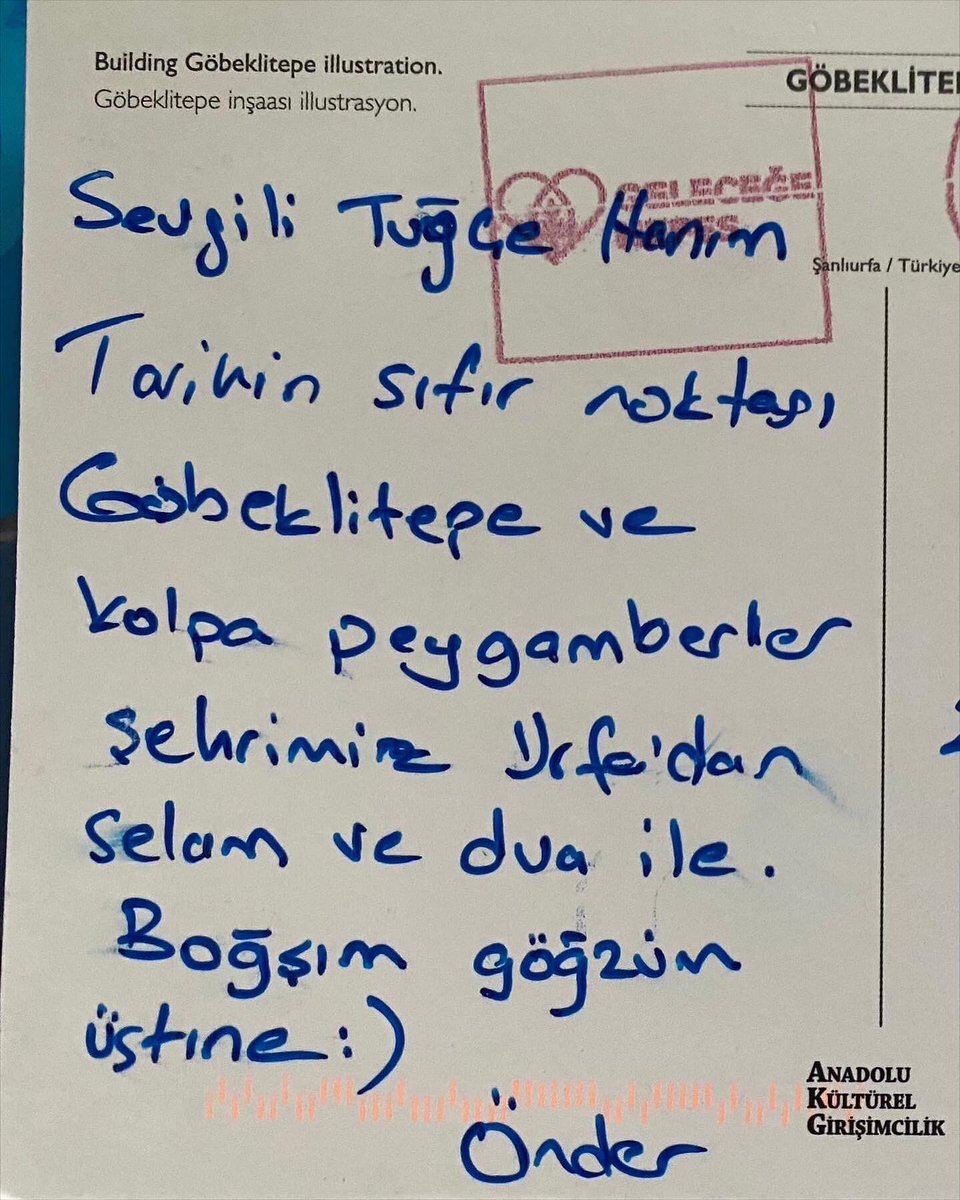 Building Göbeklitepe illustration.
Göbeklitepe inşaası illustrasyon.
GÖBEKLİTE
GELECEĞE
Şanlıurfa / Türkiye
Sevgili Tuğçe Hanım
Tarihin sıfır noktası
Göbeklitepe ve
kolpa peygamberler
şehrimiz Urfa'dan
selam ve dua ile.
Boğşım göğzüm
üştıne :)
Önder
ANADOLU
KÜLTÜREL
GİRİŞİMCİLİK